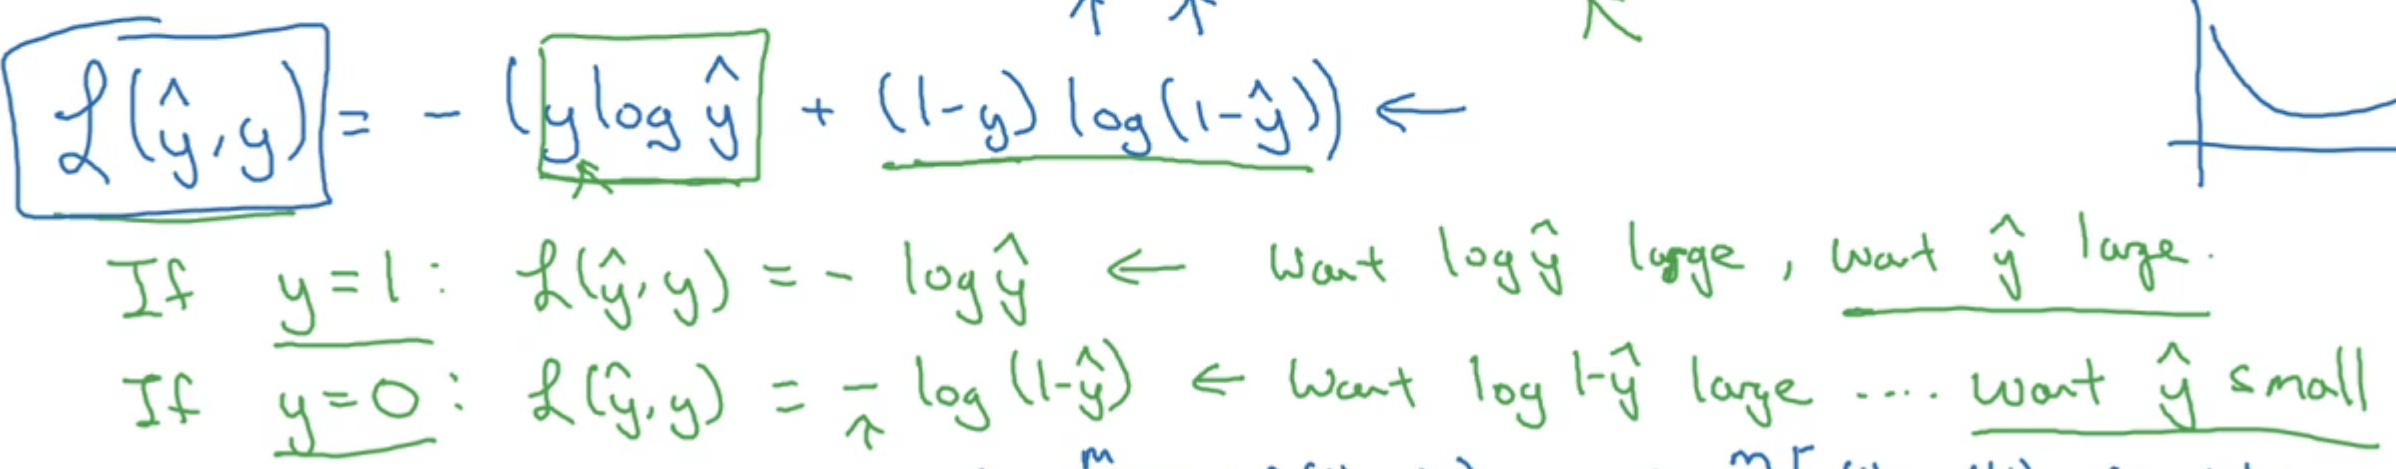 ℒ(ŷ, y) = - (y log ŷ + (1-y) log(1-ŷ)) ←
If y = 1 : ℒ(ŷ, y) = - log ŷ ← want log ŷ large, want ŷ large.
If y = 0 : ℒ(ŷ, y) = - log (1-ŷ) ← want log 1-ŷ large .... want ŷ small